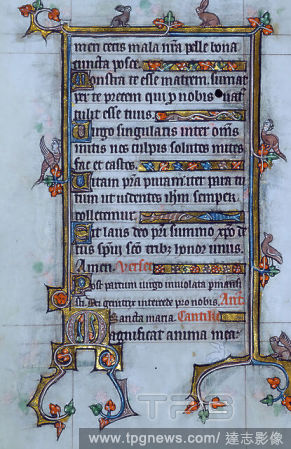 men cecis mala nr̃a pelle bona
cuncta posce.
Monstra te esse matrem. sumat
per te precem qui p nobis nat
tulit esse tuus.
Uirgo singularis inter om̃s
mitis nos culpis solutos mites
fac et castos.
Uitam p̃ra puram iter para tu
tum ut uidentes ih̃m semper
colletemur.
Sit laus deo pr̃i summo xp̃o de
cus sp̃ui sc̃o trib; honor unus.
Amen. Verset
Post partum uirgo inuiolata pman
sti. Dei genitrix intercede pro nobis. Ant
Sancta maria. Cantic
Magnificat anima mea
TPG
www.tpgnews.com / 達志影像